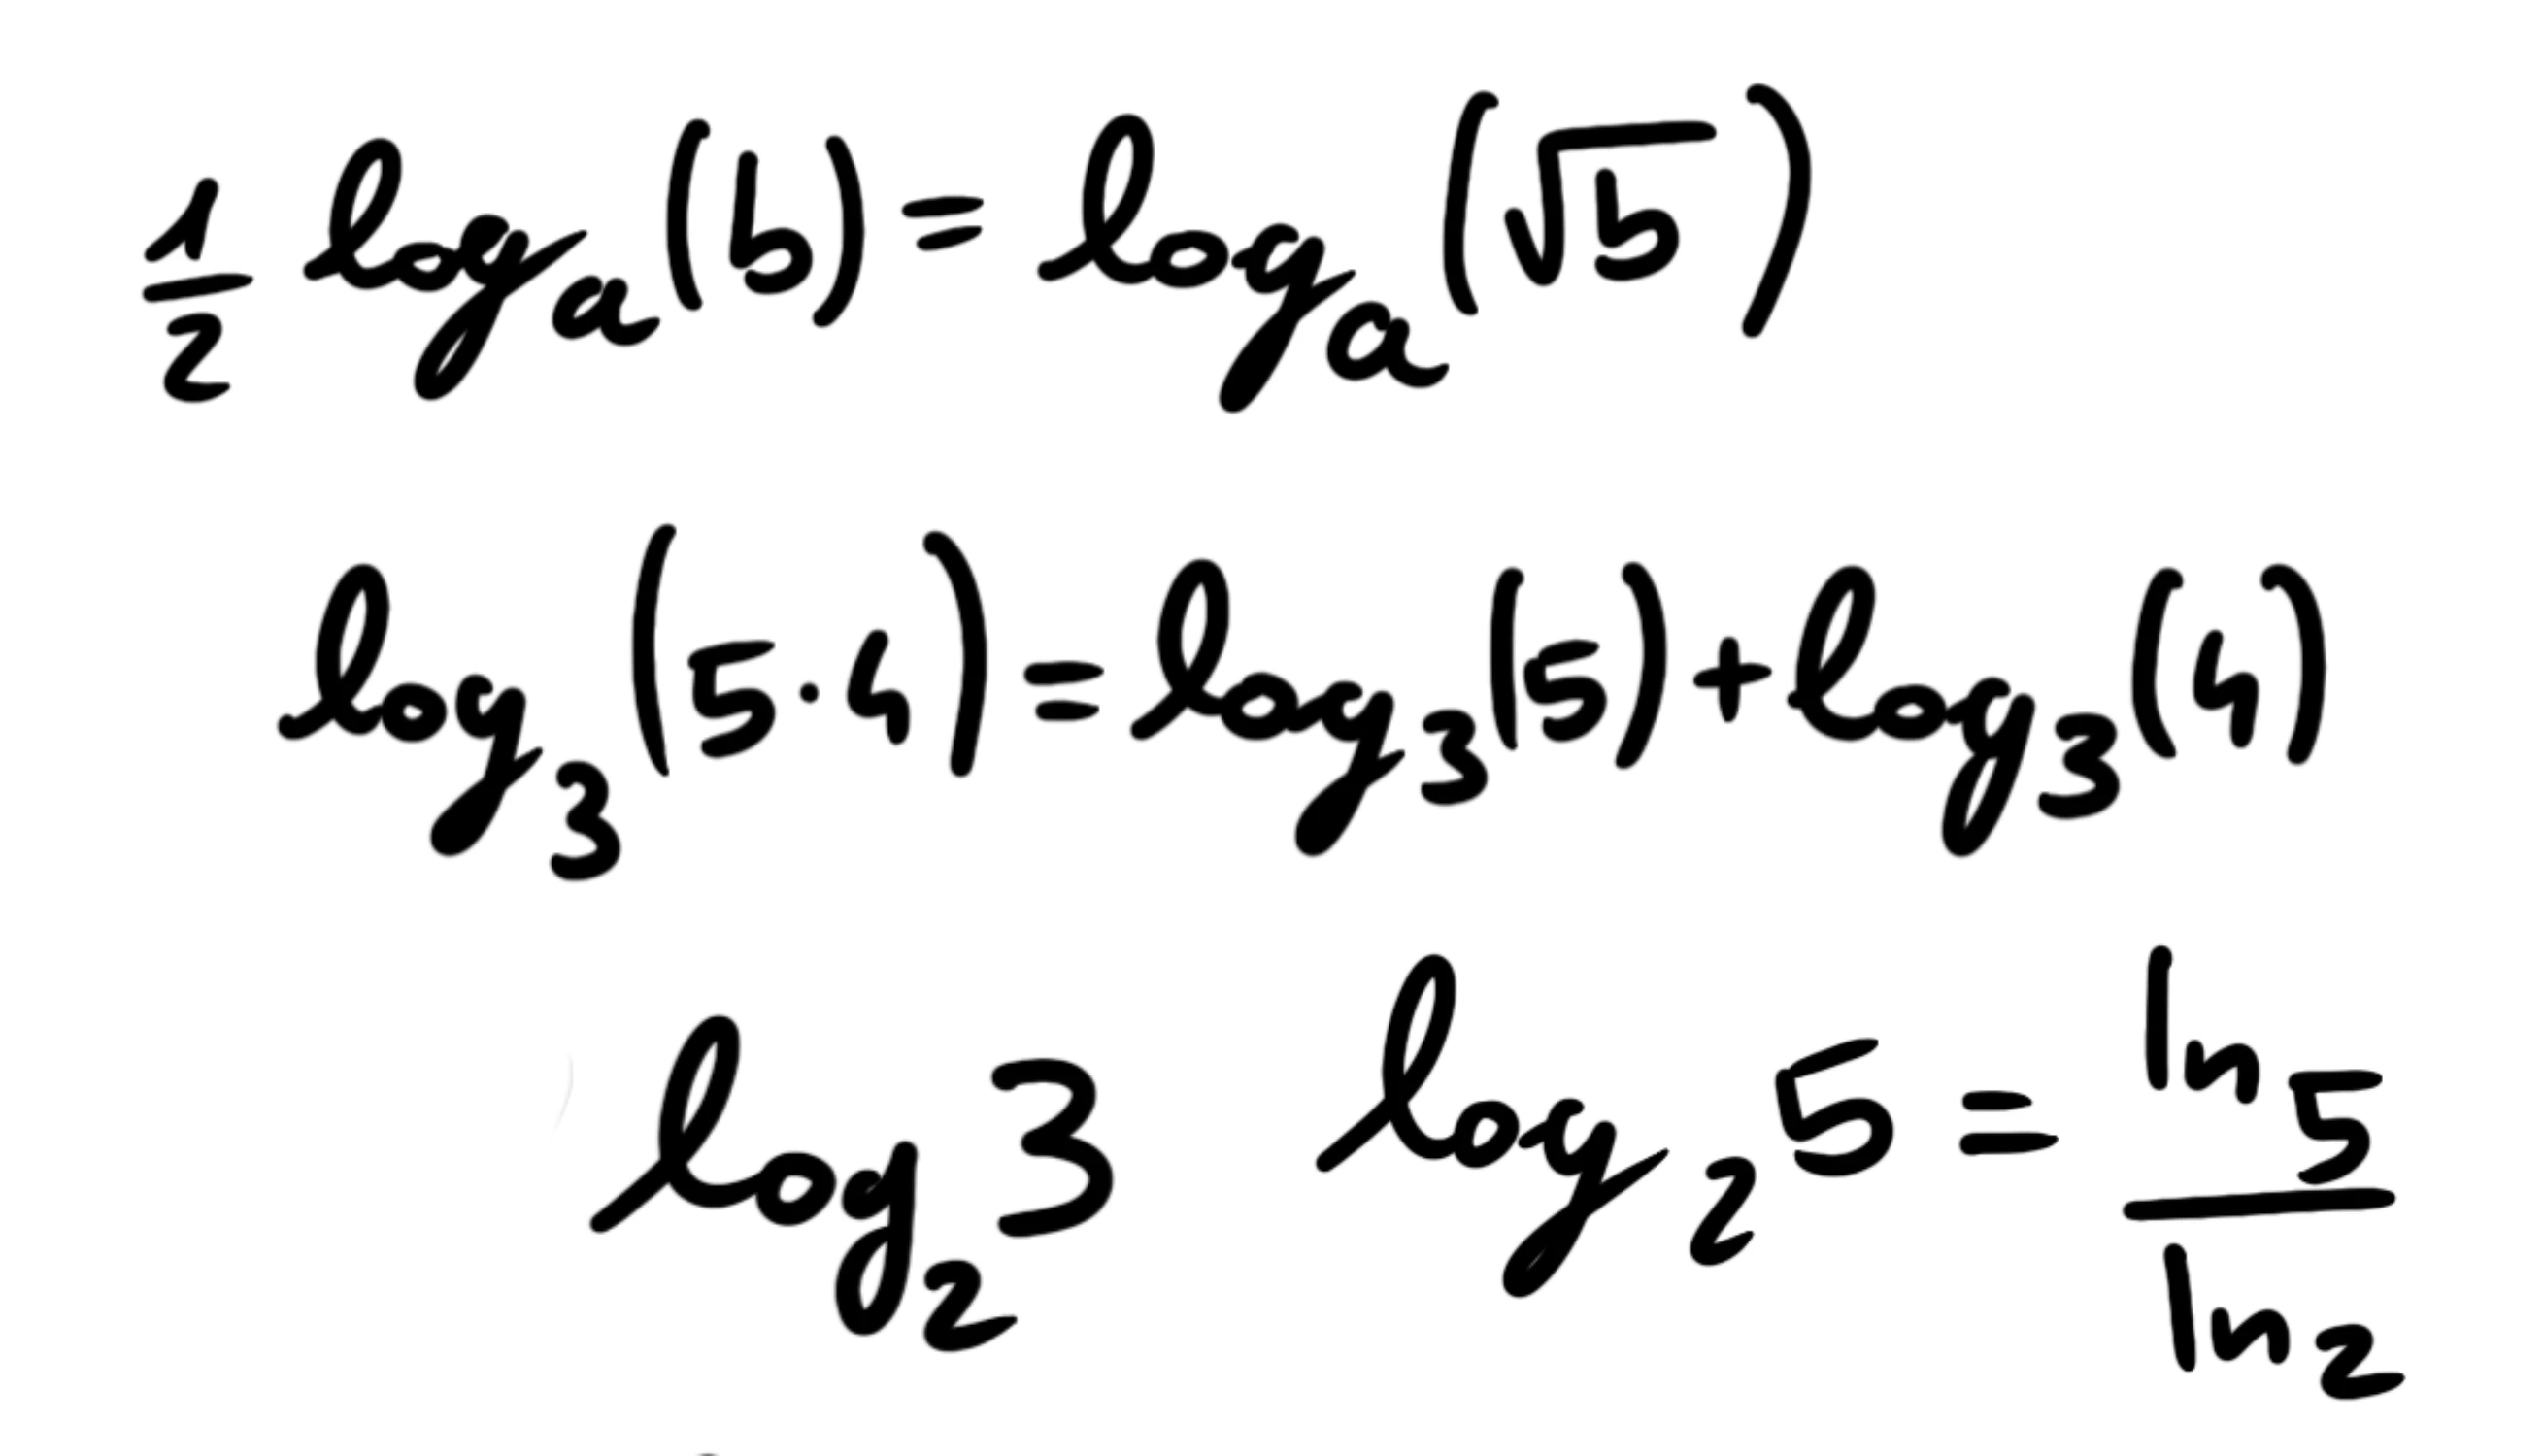 ½ logₐ(b) = logₐ(√b)
log₃(5·4) = log₃(5) + log₃(4)
log₂3 log₂5 = ln5/ln2